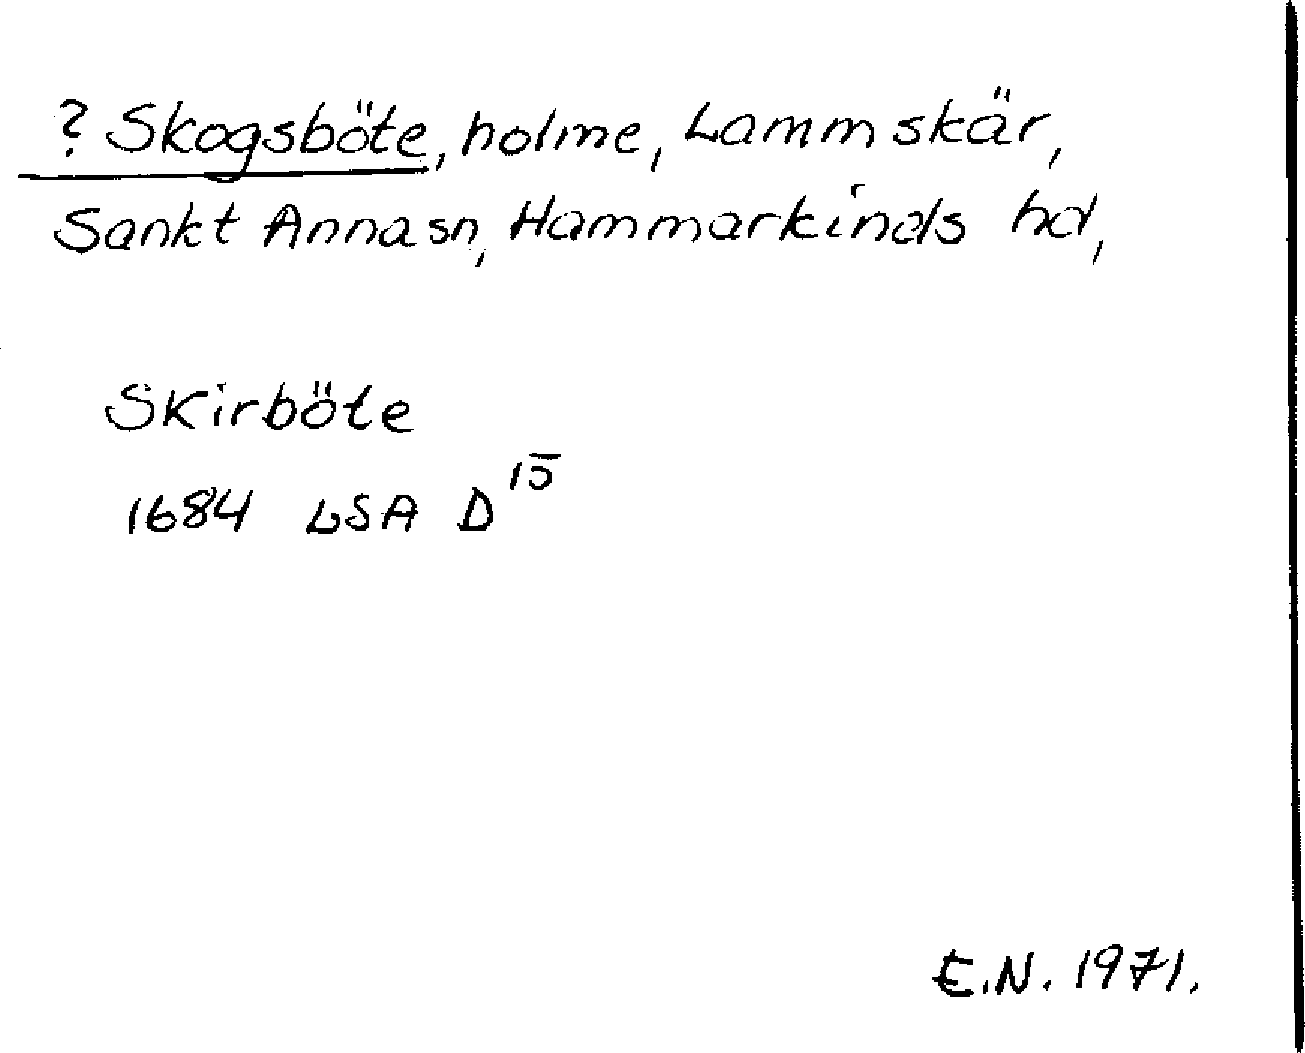 ? Skogsböte, holme, Lammskär,
Sankt Anna sn, Hammarkinds hd,
Skirböte
1684 LSA D15
E.N. 1971.